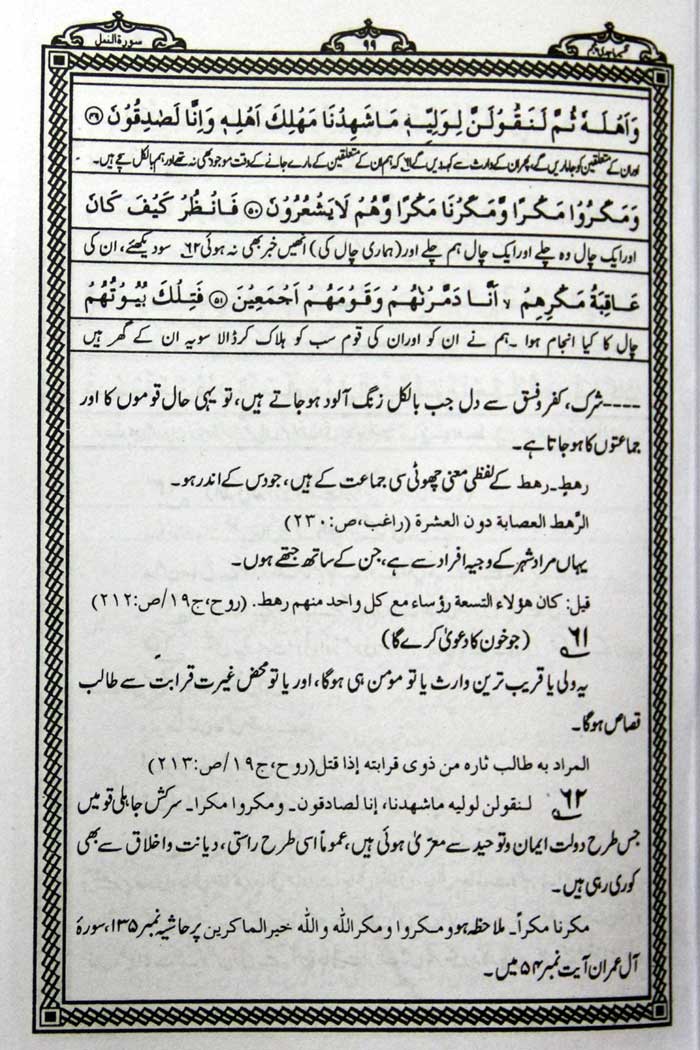 سورة النمل
۹۹
وَاَهْلَهٗ ثُمَّ لَنَقُوْلَنَّ لِوَلِيِّهٖ مَا شَهِدْنَا مَهْلِكَ اَهْلِهٖ وَاِنَّا لَصٰدِقُوْنَ ﴿۴۹﴾
اوران کے متعلقین کو جاماریں گے، پھر ان کے وارث سے کہہ دیں گے ۶۱ کہ ہم ان کے متعلقین کے مارے جانے کے وقت موجود بھی نہ تھے اور ہم بالکل سچے ہیں۔
وَمَكَرُوْا مَكْرًا وَّمَكَرْنَا مَكْرًا وَّهُمْ لَا يَشْعُرُوْنَ ﴿۵۰﴾ فَانْظُرْ كَيْفَ كَانَ
اور ایک چال وہ چلے اور ایک چال ہم چلے اور (ہماری چال کی) انھیں خبر بھی نہ ہوئی ۶۲ سو دیکھئے، ان کی
عَاقِبَةُ مَكْرِهِمْ ۙ اَنَّا دَمَّرْنٰهُمْ وَقَوْمَهُمْ اَجْمَعِيْنَ ﴿۵۱﴾ فَتِلْكَ بُيُوْتُهُمْ
چال کا کیا انجام ہوا۔ ہم نے ان کو اوران کی قوم سب کو ہلاک کرڈالا سویہ ان کے گھر ہیں
----شرک، کفر وفسق سے دل جب بالکل زنگ آلود ہوجاتے ہیں، تو یہی حال قوموں کا اور
جماعتوں کا ہوجاتا ہے۔
رهطٍ۔رهط کے لفظی معنی چھوٹی سی جماعت کے ہیں، جو دس کے اندر ہو۔
الرّهط العصابة دون العشرة (راغب،ص:۲۳۰)
یہاں مراد شہر کے وجیہ افراد سے ہے، جن کے ساتھ جتھے ہوں۔
قيل: كان هؤلاء التسعة رؤساء مع كل واحد منهم رهط. (روح،ج۱۹/ص:۲۱۲)
۶۱ (جو خون کا دعویٰ کرے گا)
یہ ولی یا قریب ترین وارث یا تو مؤمن ہی ہوگا، اور یا تو محض غیرت قرابت سے طالب
قصاص ہوگا۔
المراد به طالب ثاره من ذوی قرابته إذا قتل(روح،ج۱۹/ص:۲۱۳)
۶۲ لنقولن لوليه ماشهدنا، إنا لصادقون۔ ومكروا مكرا۔ سرکش جاہلی قومیں
جس طرح دولت ایمان وتوحید سے معرّیٰ ہوئی ہیں، عموماً اسی طرح راستی، دیانت واخلاق سے بھی
کوری رہی ہیں۔
مكرنا مكراً۔ ملاحظہ ہو ومكروا ومكرالله والله خيرالماكرين پر حاشیہ نمبر ۱۳۵، سورۂ
آل عمران آیت نمبر ۵۴ میں۔